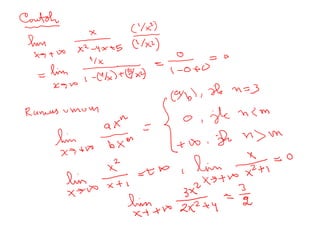 Contoh
lim x→+∞ x / (x² - 4x + 5) (1/x²) / (1/x²)
= lim x→∞ (1/x) / (1 - (4/x) + (5/x²)) = 0 / (1 - 0 + 0) = 0
Rumus umum
lim x→+∞ axⁿ / bxᵐ = { (a/b), jk n = 3
0, jk n < m
+∞, jk n > m
lim x→∞ x² / (x + 1) = +∞, lim x→+∞ x / (x² + 1) = 0
lim x→+∞ 3x² / (2x² + 4) = 3/2